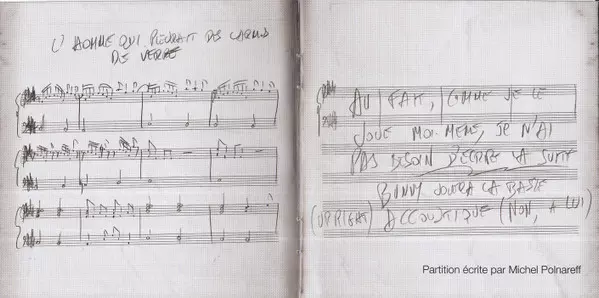 L'HOMME QUI PLEURAIT DES LARMES
DE VERRE
AU FAIT, COMME JE LE
JOUE MOI-MÊME, JE N'AI
PAS BESOIN D'ÉCRIRE LA SUITE
BUNNY JOUERA LA BASSE
(UPRIGHT) ACCOUSTIQUE (NON, A LUI)
Partition écrite par Michel Polnareff